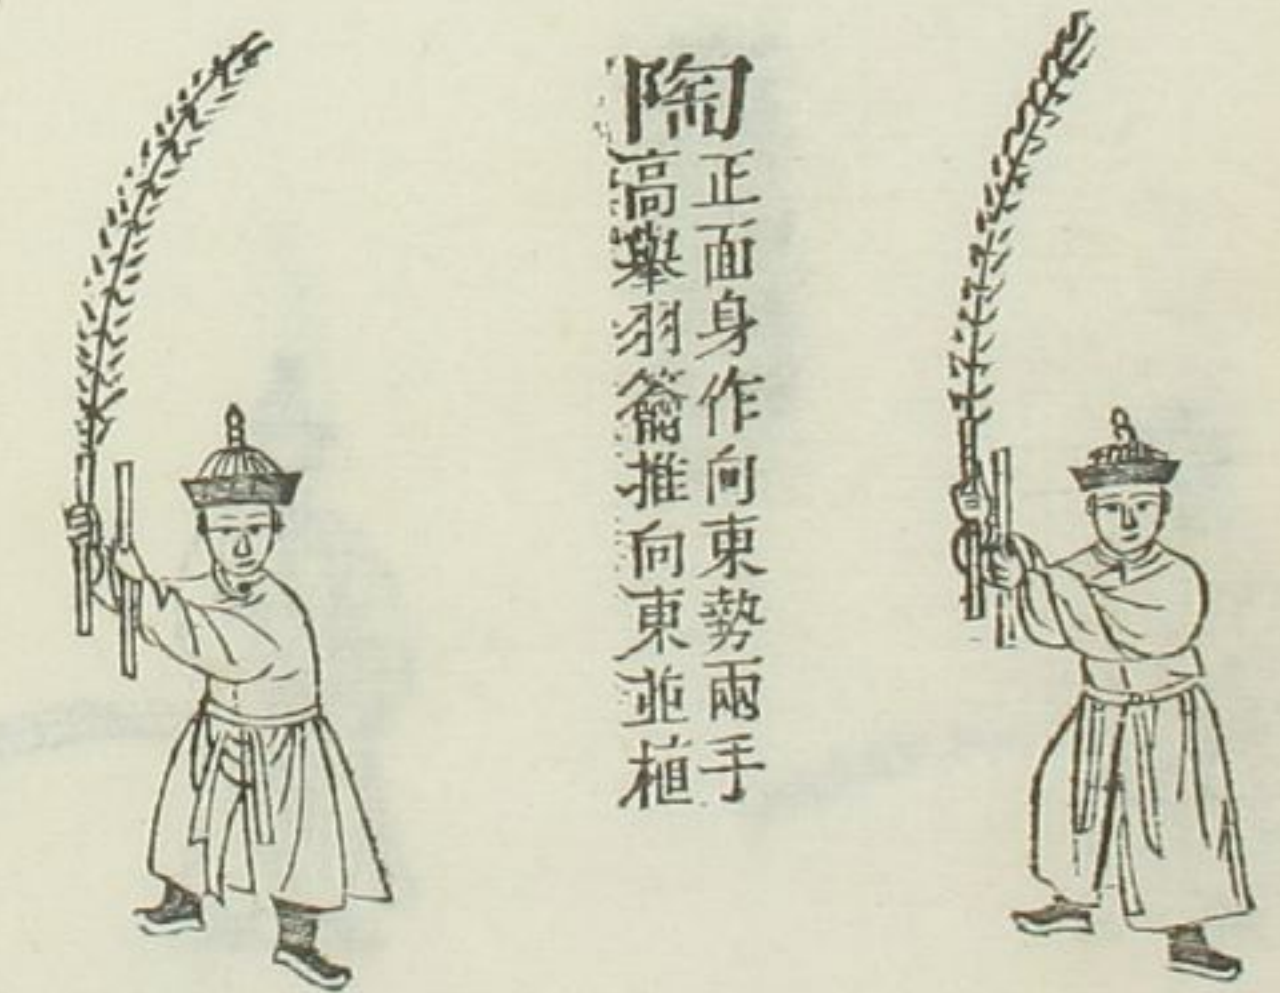 陶
正面身作向東勢兩手
高舉羽籥推向東並植